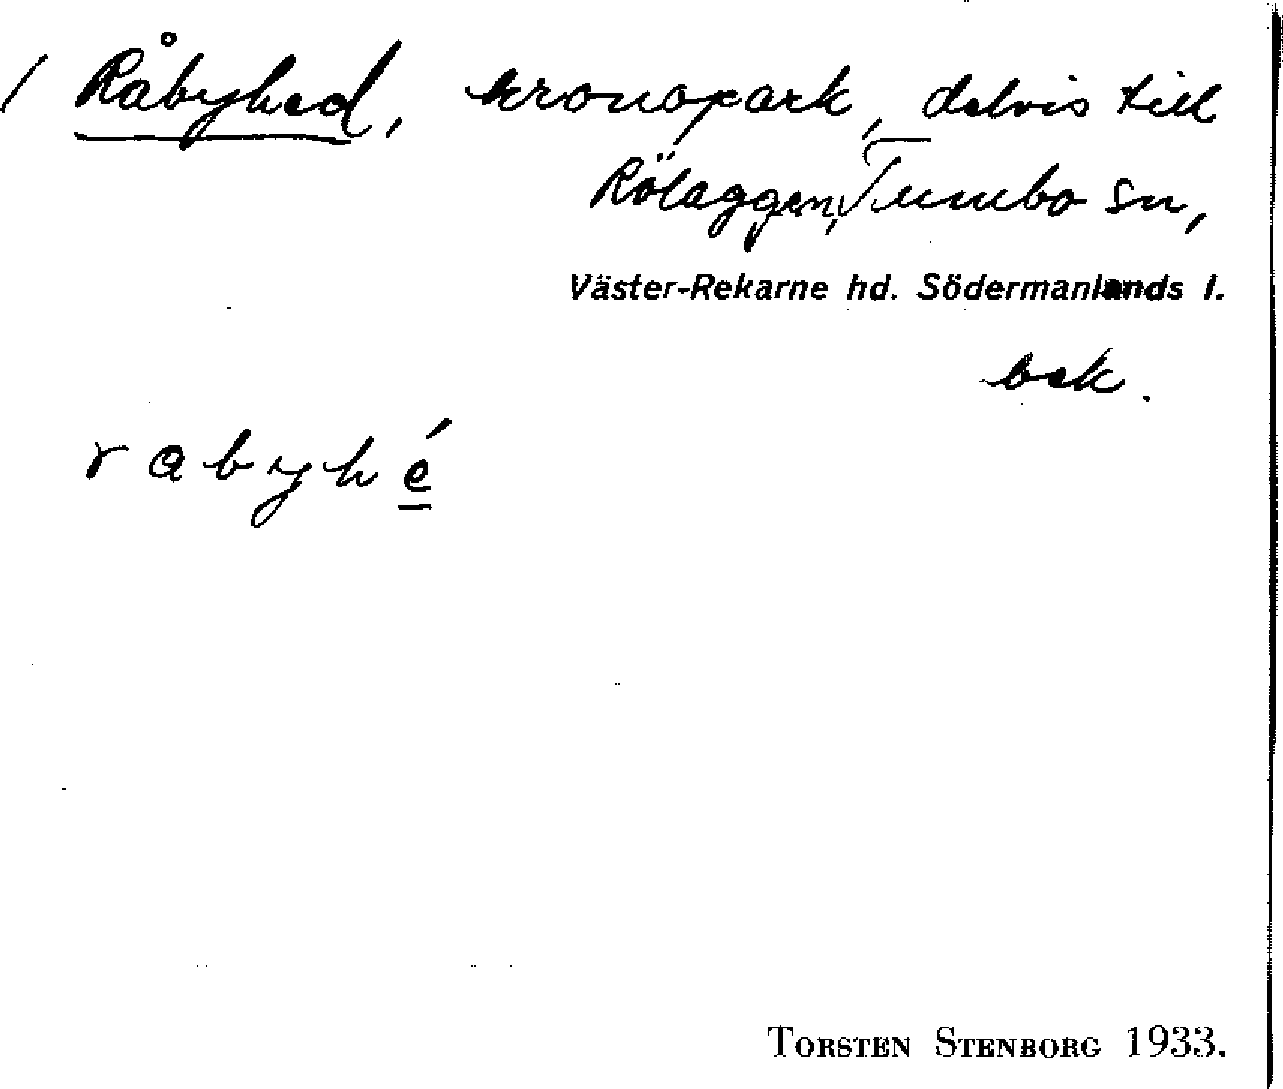 / Råbyhed, kronopark, delvis till
Rölaggen, Tumbo sn,
Väster-Rekarne hd. Södermanlands l.
bek.
rabyhé
TORSTEN STENBORG 1933.